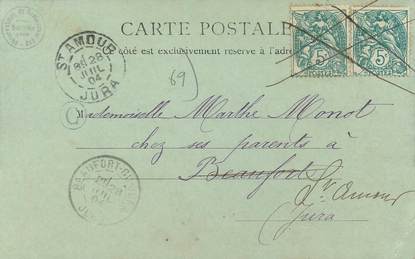 CARTE POSTALE
côté est exclusivement réservé à l'adre
5 5
POSTES POSTES
ST AMOUR
28
JUIL
04
JURA
69
Mademoiselle Marthe Monot
chez ses parents à
Beaufort St Amour
Jura
BEAUFORT-DU-JURA
28
JUIL
04